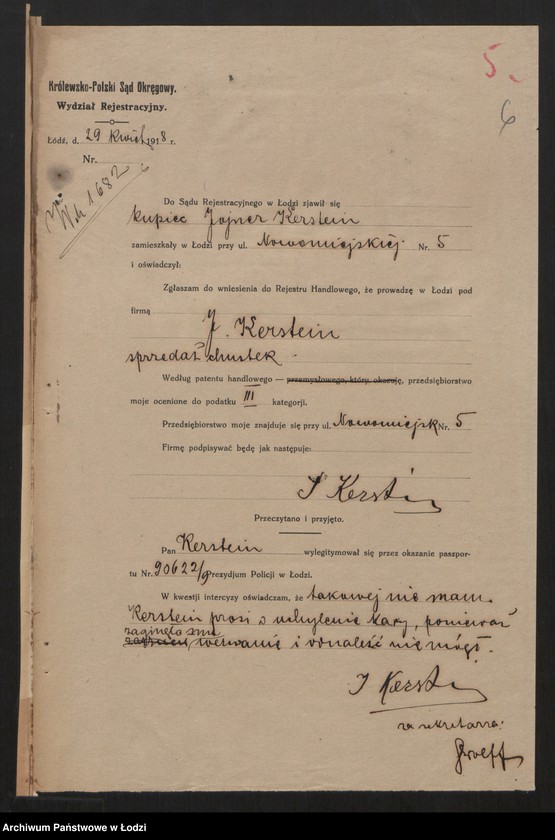 5.
6
Królewsko-Polski Sąd Okręgowy.
Wydział Rejestracyjny.
Łódź, d. 29 kwiet. 1918 r.
Nr.
1682
Do Sądu Rejestracyjnego w Łodzi zjawił się
kupiec Jojner Kerstein
zamieszkały w Łodzi przy ul. Nowomiejskiej Nr. 5
i oświadczył:
Zgłaszam do wniesienia do Rejestru Handlowego, że prowadzę w Łodzi pod
firmą
J. Kerstein
sprzedaż chustek
Według patentu handlowego — przemysłowego, który okazuję, przedsiębiorstwo
moje ocenione do podatku III kategorji.
Przedsiębiorstwo moje znajduje się przy ul. Nowomiejsk Nr. 5
Firmę podpisywać będę jak następuje:
J Kerstein
Przeczytano i przyjęto.
Pan Kerstein wylegitymował się przez okazanie paszpor-
tu Nr. 90622/9 Prezydjum Policji w Łodzi.
W kwestji intercyzy oświadczam, że takowej nie mam.
Kerstein prosi o uchylenie kary, ponieważ
zaginęło mu
wezwanie i odnaleźć nie mógł.
J Kerstein
za sekretarza:
Archiwum Państwowe w Łodzi